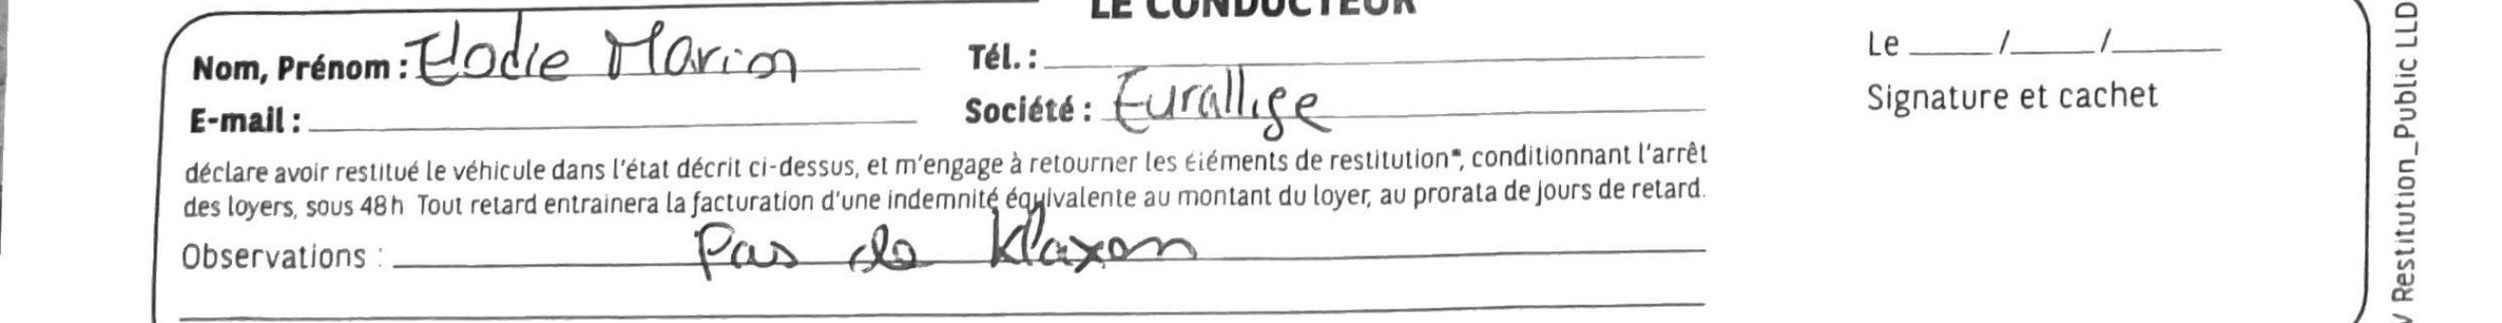 LE CONDUCTEUR
Nom, Prénom : Elodie Marion
Tél. :
Le ____/____/____
E-mail :
Société : Eurallige
Signature et cachet
déclare avoir restitué le véhicule dans l'état décrit ci-dessus, et m'engage à retourner les éléments de restitution*, conditionnant l'arrêt
des loyers, sous 48h Tout retard entrainera la facturation d'une indemnité équivalente au montant du loyer, au prorata de jours de retard.
Observations : Pas de Klaxon
Restitution_Public LLD